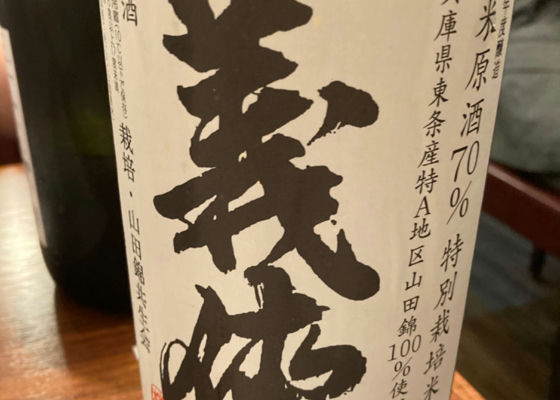 年度醸造
米原酒70% 特別栽培米
兵庫県東条産特A地区山田錦100%使
義侠
酒
栽培・山田錦